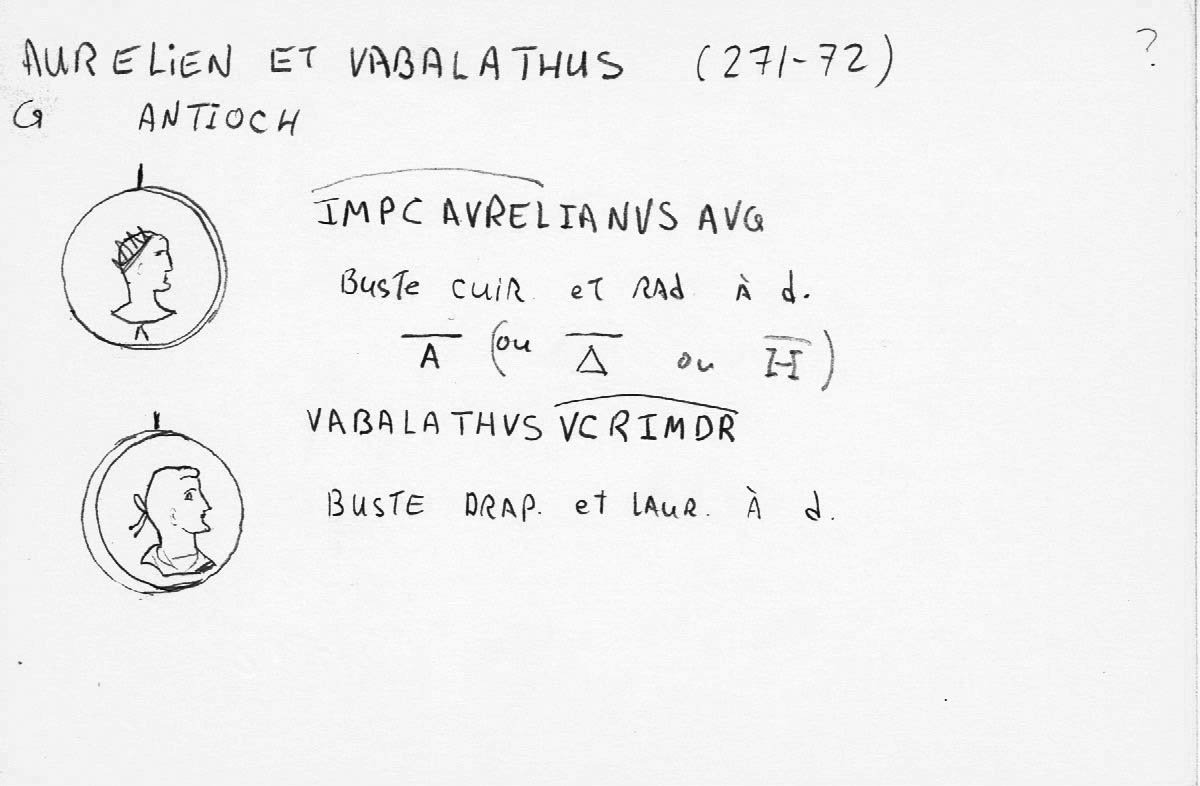 AURELIEN ET VABALATHUS (271-72) ?
G ANTIOCH
IMPC AVRELIANVS AVG
BUSTE CUIR. et RAD. À d.
A (ou Δ ou H)
VABALATHVS VCRIMDR
BUSTE DRAP. et LAUR. À d.